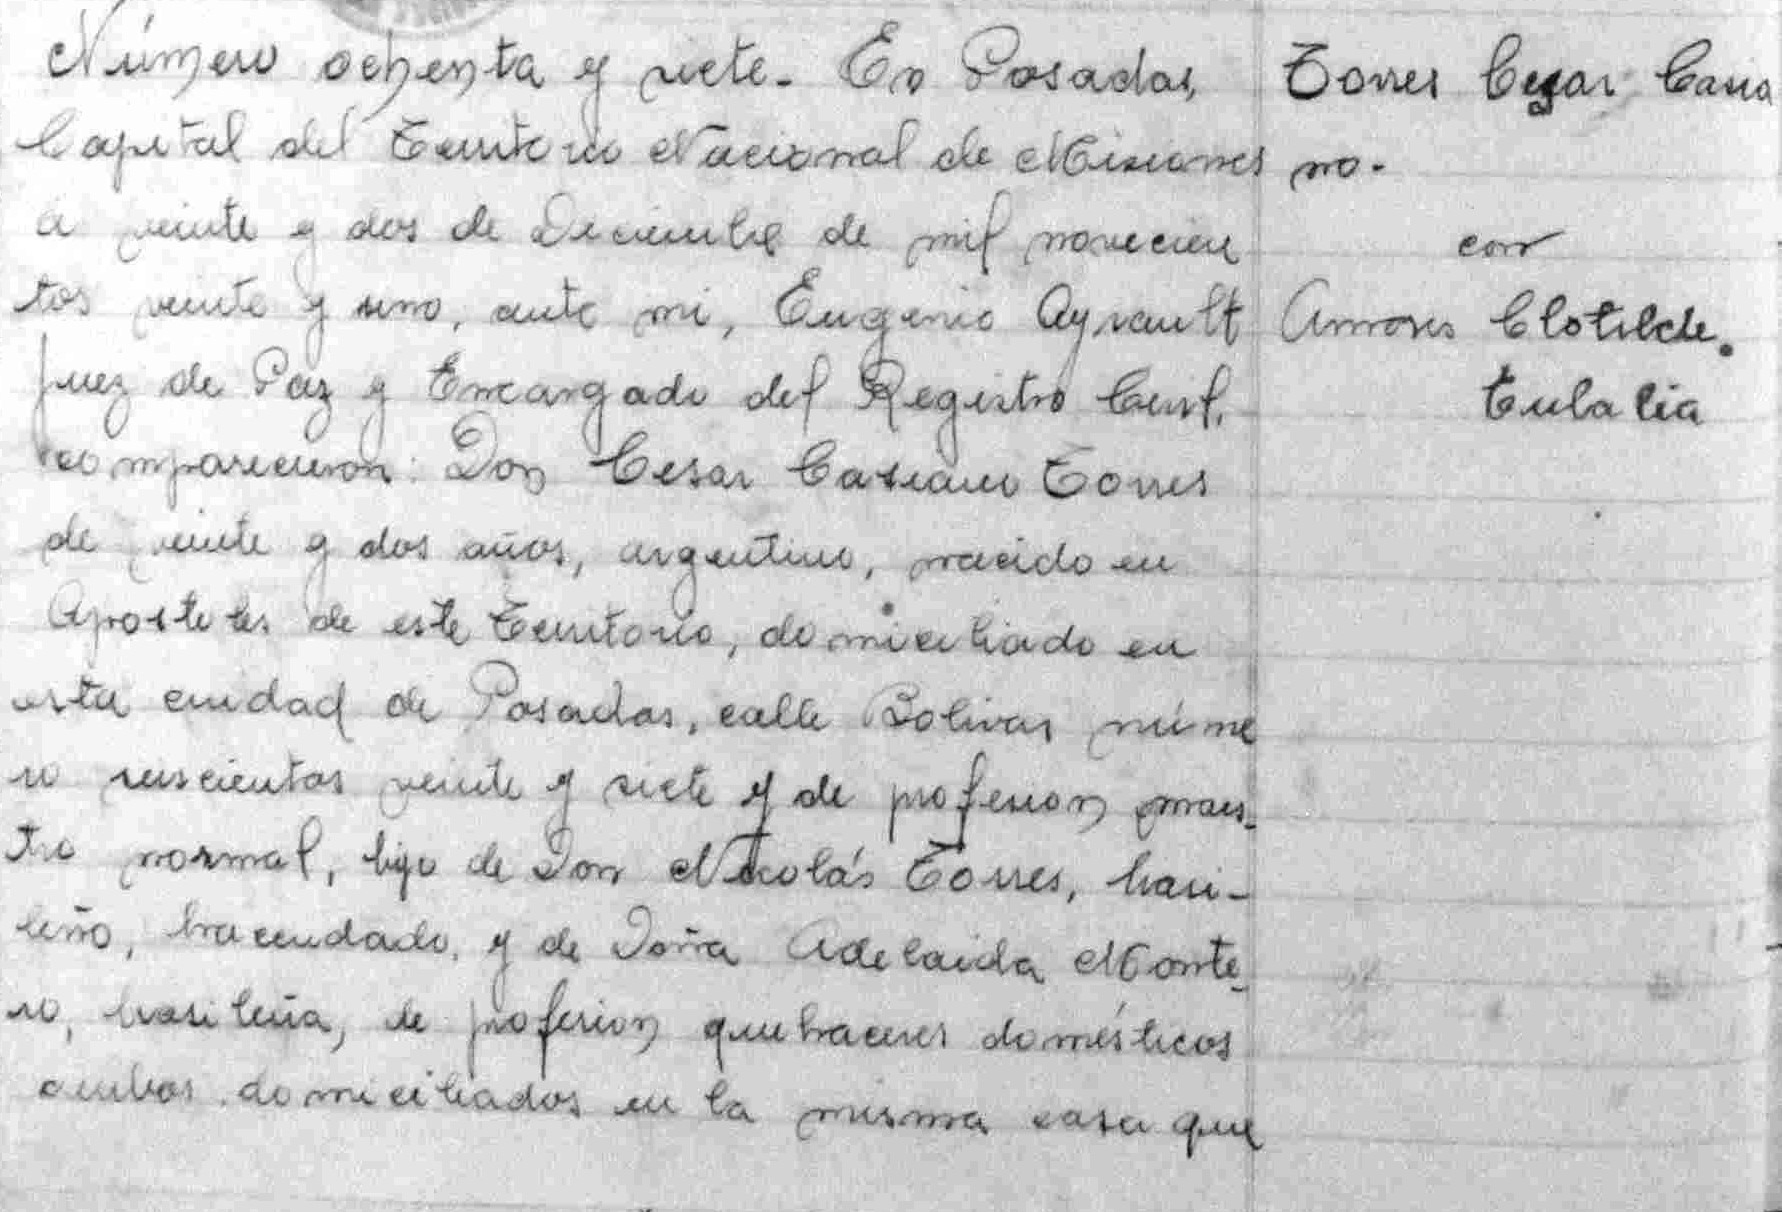 Número ochenta y siete. En Posadas,
Capital del Territorio Nacional de Misiones
a veinte y dos de Diciembre de mil novecien
tos veinte y uno, ante mi, Eugenio Ayrault
Juez de Paz y Encargado del Registro Civil,
comparecieron: Don Cesar Casiano Torres
de veinte y dos años, argentino, nacido en
Apostoles de este Territorio, domiciliado en
esta ciudad de Posadas, calle Bolivar núme
ro seiscientos veinte y siete y de profesion maes-
tro normal, hijo de Don Nicolás Torres, brasi-
leño, hacendado, y de Doña Adelaida Monte-
ro, brasileña, de profesion quehaceres domésticos
ambos domiciliados en la misma casa que
Torres Cesar Casia
no.
con
Amores Clotilde.
Eulalia